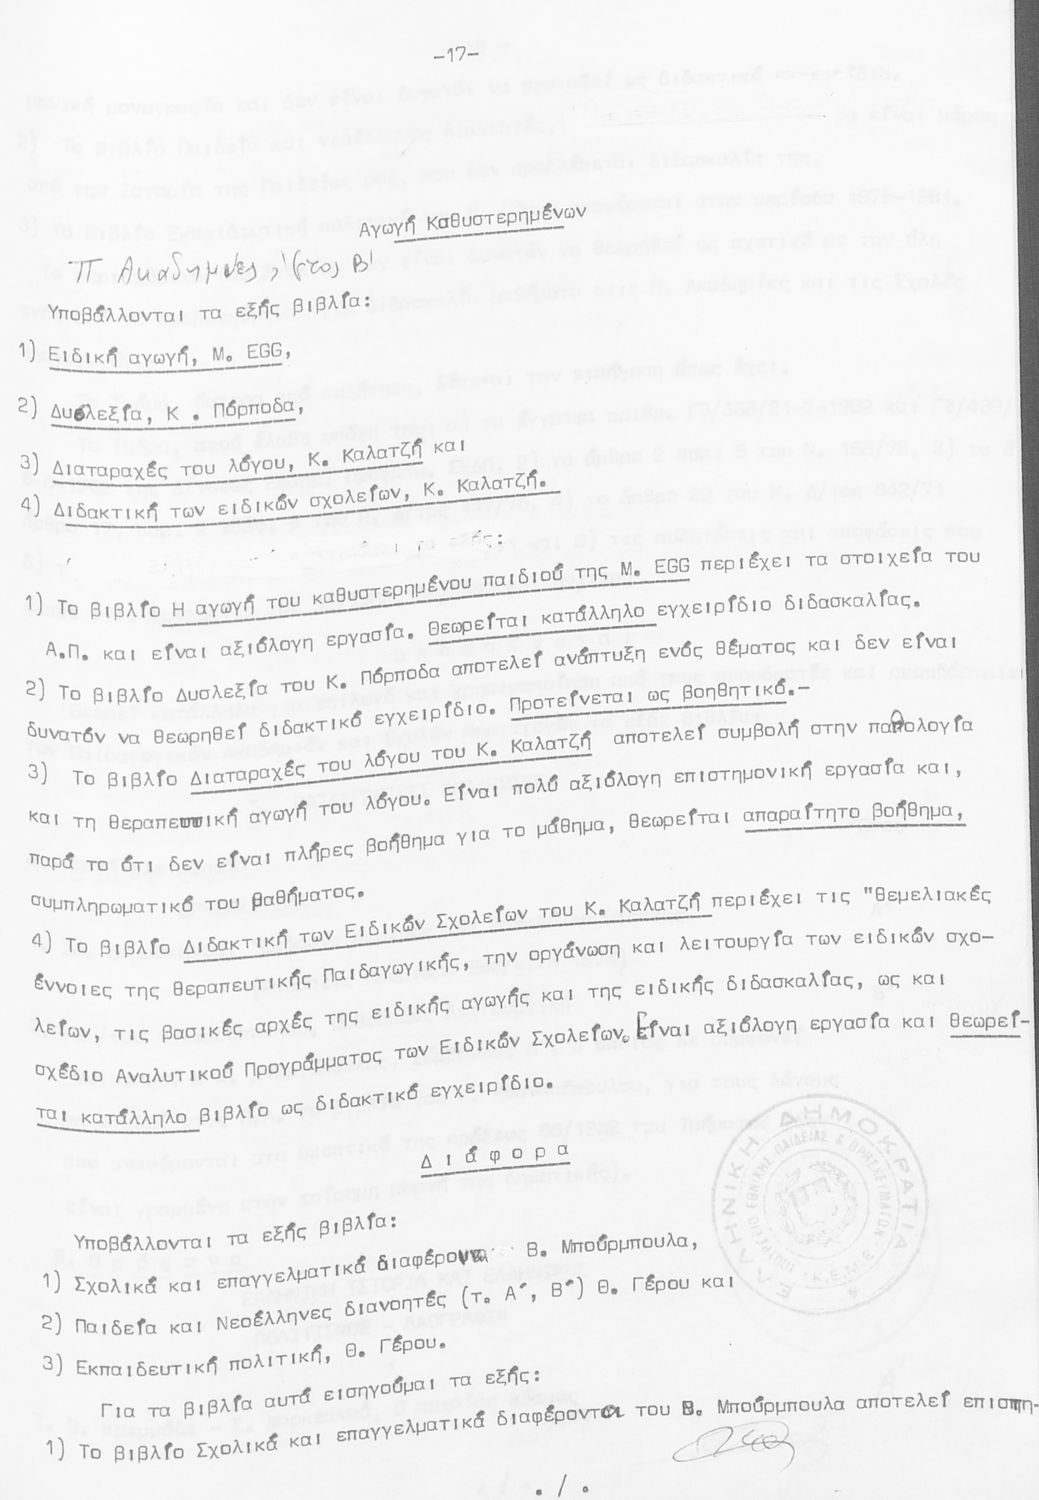 -17-
Αγωγή Καθυστερημένων
Π Ακαδημίες, έτος Β'
Υποβάλλονται τα εξής βιβλία:
1) Ειδική αγωγή, Μ. EGG,
2) Δυσλεξία, Κ . Πόρποδα,
3) Διαταραχές του λόγου, Κ. Καλατζή και
4) Διδακτική των ειδικών σχολείων, Κ. Καλατζή.
τα εξής:
1) Το βιβλίο Η αγωγή του καθυστερημένου παιδιού της Μ. EGG περιέχει τα στοιχεία του
Α.Π. και είναι αξιόλογη εργασία. Θεωρείται κατάλληλο εγχειρίδιο διδασκαλίας.
2) Το βιβλίο Δυσλεξία του Κ. Πόρποδα αποτελεί ανάπτυξη ενός θέματος και δεν είναι
δυνατόν να θεωρηθεί διδακτικό εγχειρίδιο. Προτείνεται ως βοηθητικό.-
3) Το βιβλίο Διαταραχές του λόγου του Κ. Καλατζή αποτελεί συμβολή στην παθολογία
και τη θεραπευτική αγωγή του λόγου. Είναι πολύ αξιόλογη επιστημονική εργασία και,
παρά το ότι δεν είναι πλήρες βοήθημα για το μάθημα, θεωρείται απαραίτητο βοήθημα,
συμπληρωματικό του μαθήματος.
4) Το βιβλίο Διδακτική των Ειδικών Σχολείων του Κ. Καλατζή περιέχει τις "θεμελιακές
έννοιες της θεραπευτικής Παιδαγωγικής, την οργάνωση και λειτουργία των ειδικών σχο-
λείων, τις βασικές αρχές της ειδικής αγωγής και της ειδικής διδασκαλίας, ως και
σχέδιο Αναλυτικού Προγράμματος των Ειδικών Σχολείων. Είναι αξιόλογη εργασία και θεωρεί-
ται κατάλληλο βιβλίο ως διδακτικό εγχειρίδιο.
Δ ι ά φ ο ρ α
Υποβάλλονται τα εξής βιβλία:
1) Σχολικά και επαγγελματικά διαφέροντα Β. Μπούρμπουλα,
2) Παιδεία και Νεοέλληνες διανοητές (τ. Α', Β') Θ. Γέρου και
3) Εκπαιδευτική πολιτική, Θ. Γέρου.
Για τα βιβλία αυτά εισηγούμαι τα εξής:
1) Το βιβλίο Σχολικά και επαγγελματικά διαφέροντα του Β. Μπούρμπουλα αποτελεί επιστη-
. / .
ΕΛΛΗΝΙΚΗ ΔΗΜΟΚΡΑΤΙΑ
ΥΠΟΥΡΓΕΙΟ ΕΘΝΙΚΗΣ ΠΑΙΔΕΙΑΣ & ΘΡΗΣΚΕΥΜΑΤΩΝ
Κ.Ε.Μ.Ε.